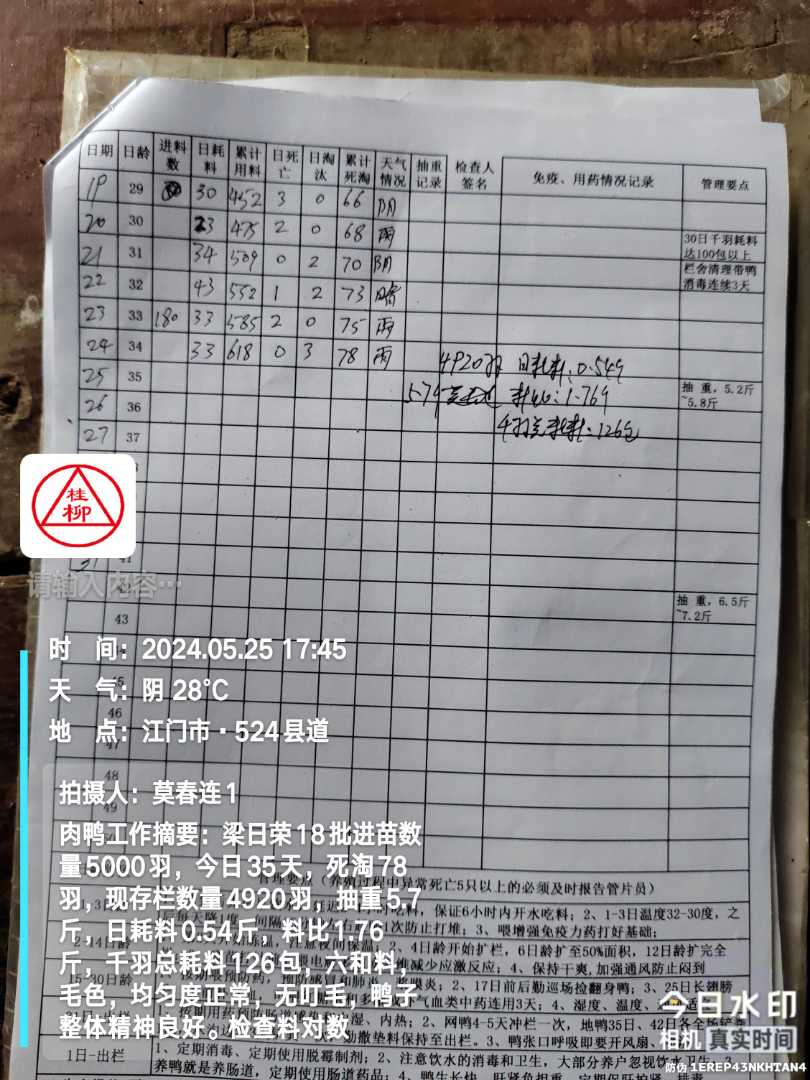 日期 日龄 进料数 日耗料 累计用料 日死亡 日淘汰 累计死淘 天气情况 抽重记录 检查人签名 免疫、用药情况记录 管理要点
19 29 30 452 3 0 66 阴
20 30 23 475 2 0 68 雨 30日千羽耗料达100包以上
21 31 34 509 0 2 70 阴 栏舍清理带鸭消毒连续3天
22 32 43 552 1 2 73 晴
23 33 180 33 585 2 0 75 雨
24 34 33 618 0 3 78 雨 4920羽 日耗料:0.54斤
25 35 料比:1.76斤 抽重,5.2斤~5.8斤
26 36 耗料:126包
27 37
桂柳
31 41
请输入内容…
42 抽重,6.5斤~7.2斤
43
时 间:2024.05.25 17:45
天 气:阴 28℃
46
地 点:江门市·524县道
47
48
拍摄人:莫春连1
49
肉鸭工作摘要:梁日荣18批进苗数
量5000羽,今日35天,死淘78
羽,现存栏数量4920羽,抽重5.7
斤,日耗料0.54斤,料比1.76
斤,千羽总耗料126包,六和料,
毛色,均匀度正常,无叮毛,鸭子
整体精神良好。检查料对数
管理要点(养殖过程中异常死亡5只以上的必须及时报告管片员)
吃料,保证6小时内开水吃料;2、1-3日温度32-30度,之
次防止打堆;3、喂增强免疫力药打好基础;
2、4日龄开始扩栏,6日龄扩至50%面积,12日龄扩完全
减少应激反应;4、保持干爽,加强通风防止闷到
2、17日前后勤巡场捡翻身鸭;3、25日长翅膀
气血类中药连用3天;4、湿度、温度、
湿、内热;2、网鸭4-5天冲栏一次,地鸭35日、42日各
撒垫料保持至出栏。3、鸭张口呼吸即要开风扇、
1日-出栏 1、定期消毒、定期使用脱霉制剂;2、注意饮水的消毒和卫生,大部分养户忽视饮水卫生。3、
养鸭就是养肠道,定期使用肠道药品;4、鸭生长快,肝肾负担重,定期保肝护肾
今日水印
相机 真实时间
防伪 1EREP43NKHTAN4